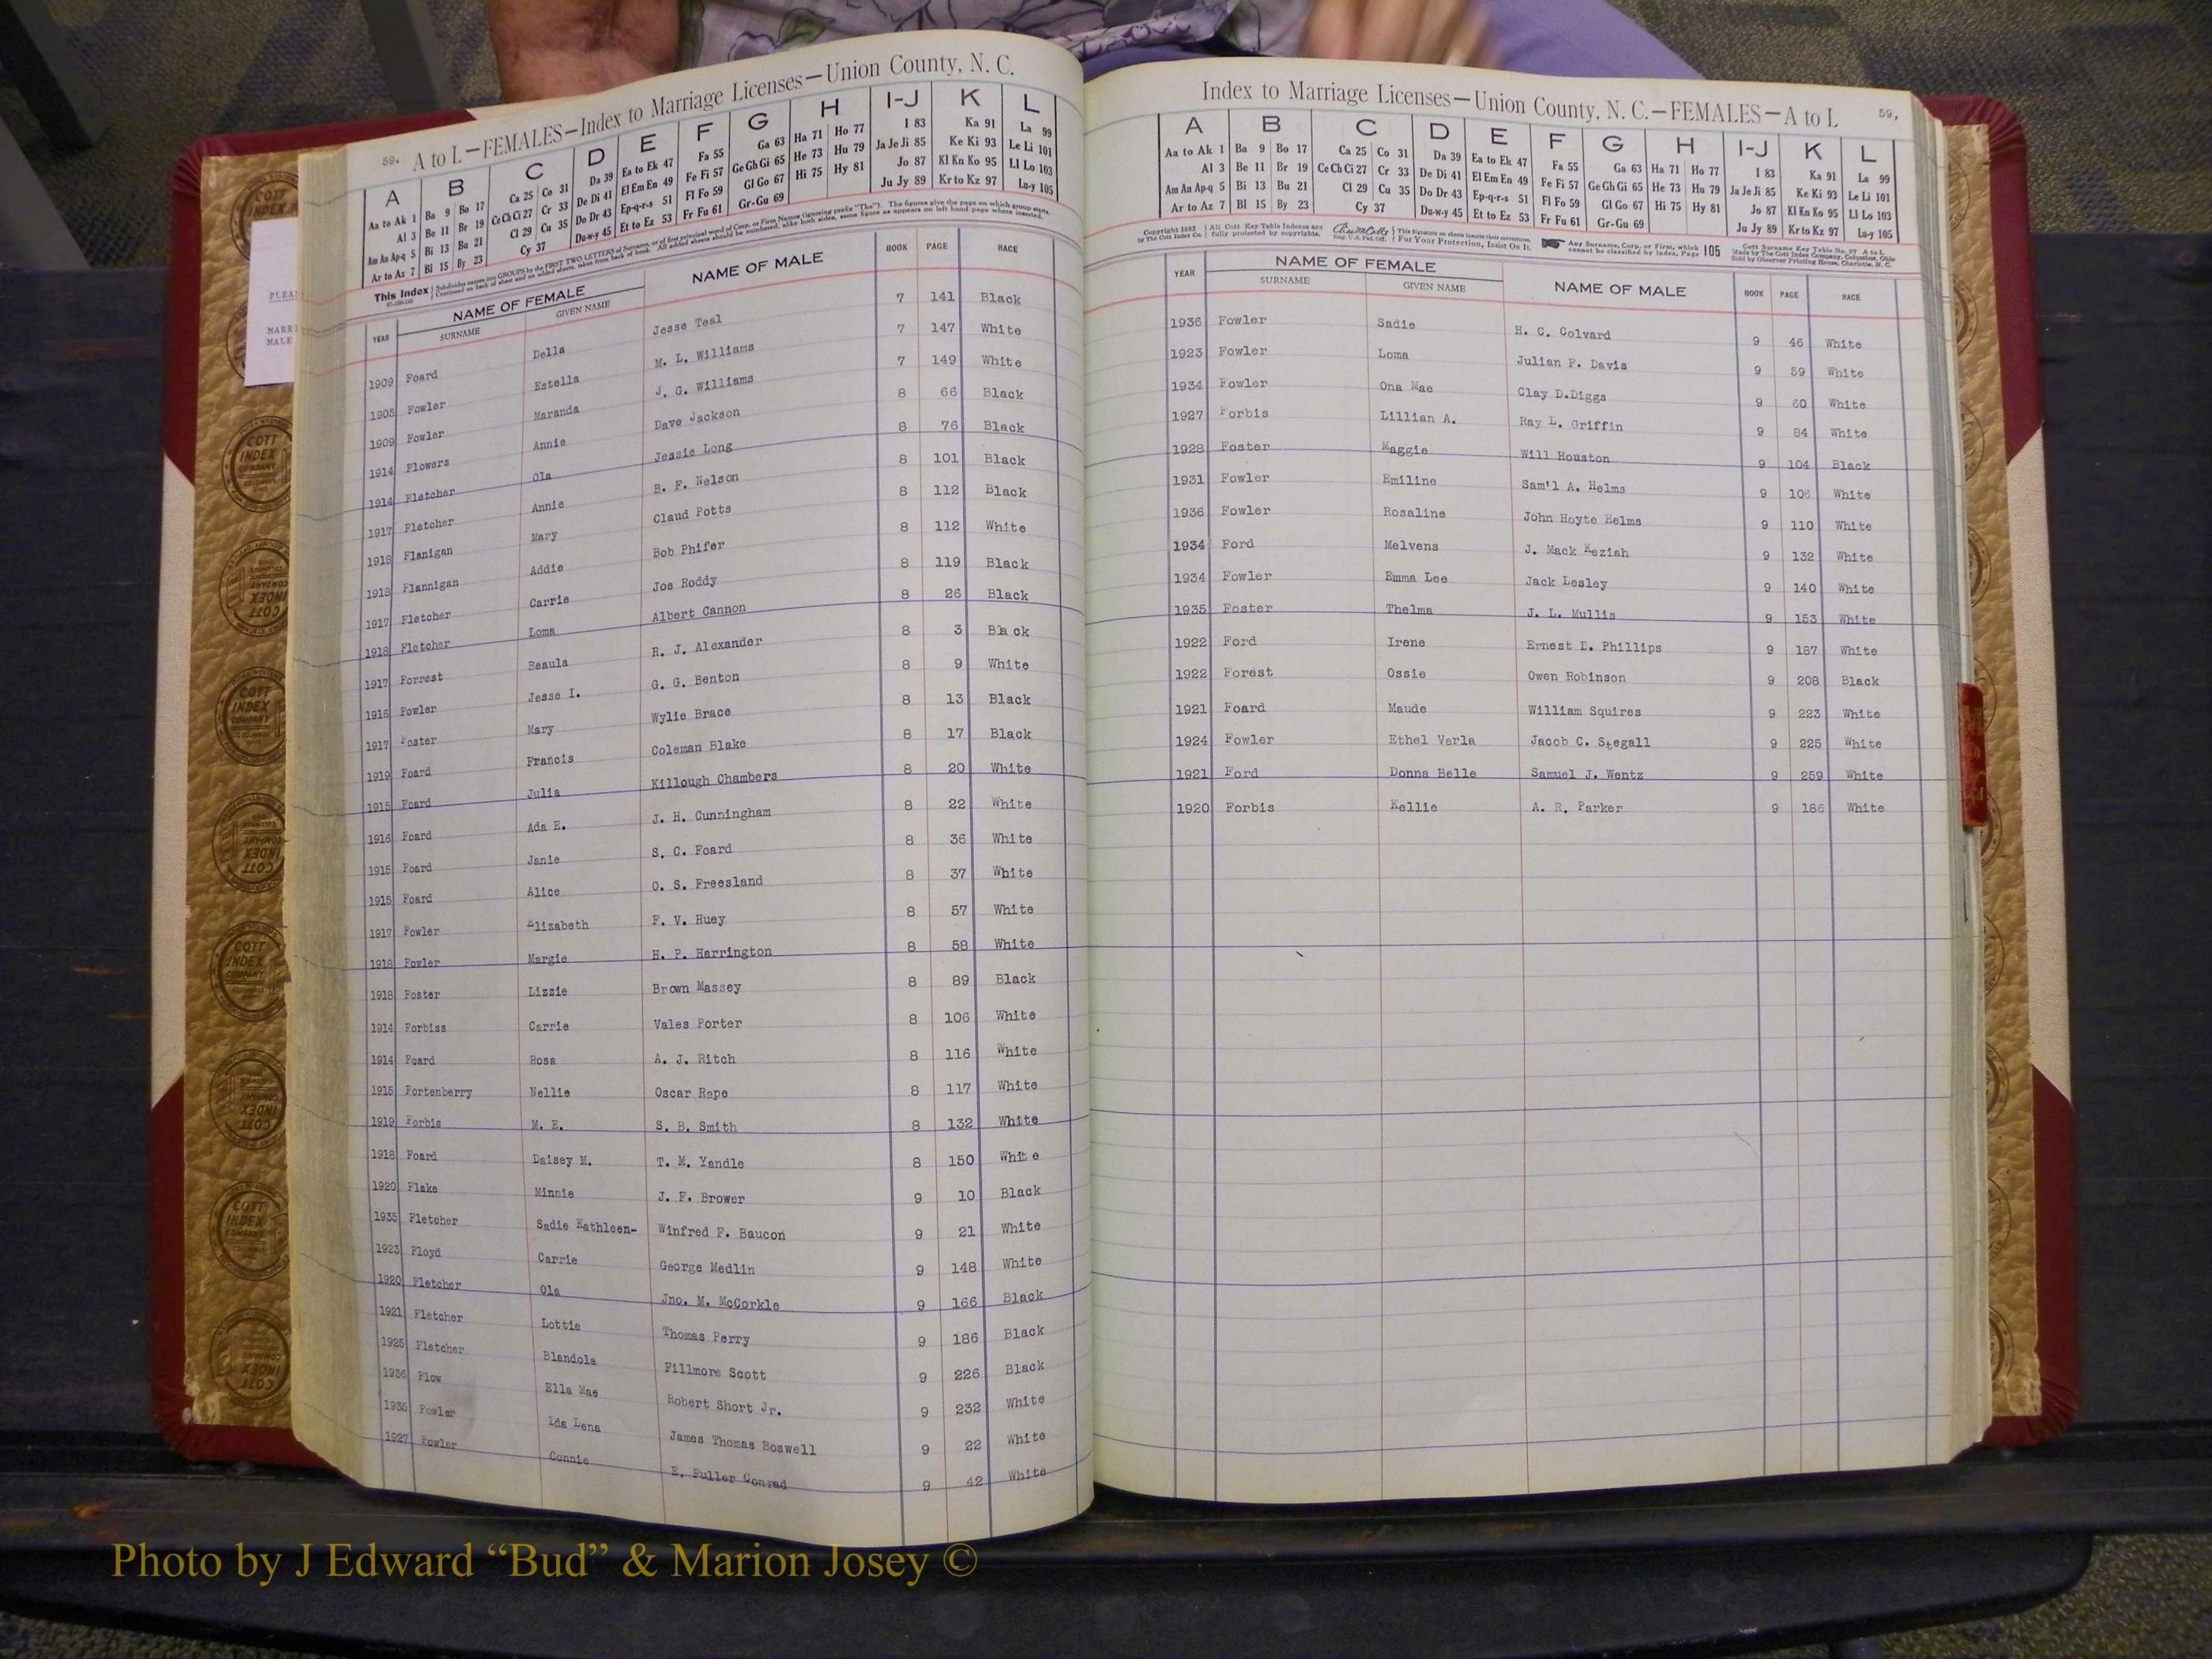 59. A to L—FEMALES—Index to Marriage Licenses—Union County, N. C.
A B C D E F G H I-J K L
Aa to Ak 1 Ba 9 Bo 17 Ca 25 Co 31 Da 39 Ea to Ek 47 Fa 55 Ga 63 Ha 71 Ho 77 I 83 Ka 91 La 99
Al 3 Be 11 Br 19 Ce Ch Ci 27 Cr 33 De Di 41 El Em En 49 Fe Fi 57 Ge Gh Gi 65 He 73 Hu 79 Ja Je Ji 85 Ke Ki 93 Le Li 101
Am An Ap-q 5 Bi 13 Bu 21 Cl 29 Cu 35 Do Dr 43 Ep-q-r-s 51 Fl Fo 59 Gl Go 67 Hi 75 Hy 81 Jo 87 Kl Kn Ko 95 Ll Lo 103
Ar to Az 7 Bl 15 By 23 Cy 37 Du-w-y 45 Et to Ez 53 Fr Fu 61 Gr-Gu 69 Ju Jy 89 Kr to Kz 97 Lu-y 105
This Index
YEAR NAME OF FEMALE NAME OF MALE BOOK PAGE RACE
SURNAME GIVEN NAME
1909 Foard Della Jesse Teal 7 141 Black
1905 Fowler Estella M. L. Williams 7 147 White
1909 Fowler Maranda J. G. Williams 7 149 White
1914 Flowers Annie Dave Jackson 8 66 Black
1914 Fletcher Ola Jessie Long 8 76 Black
1917 Fletcher Annie B. F. Nelson 8 101 Black
1918 Flanigan Mary Claud Potts 8 112 Black
1918 Flannigan Addie Bob Phifer 8 112 White
1917 Fletcher Carrie Joe Roddy 8 119 Black
1918 Fletcher Loma Albert Cannon 8 26 Black
1917 Forrest Beaula R. J. Alexander 8 3 Black
1916 Fowler Jesse I. G. G. Benton 8 9 White
1917 Foster Mary Wylie Brace 8 13 Black
1919 Foard Francis Coleman Blake 8 17 Black
1915 Foard Julia Killough Chambers 8 20 White
1916 Foard Ada E. J. H. Cunningham 8 22 White
1915 Foard Janie S. C. Foard 8 36 White
1915 Foard Alice O. S. Freesland 8 37 White
1917 Fowler Elizabeth F. V. Huey 8 57 White
1918 Fowler Margie H. P. Harrington 8 58 White
1918 Foster Lizzie Brown Massey 8 89 Black
1914 Forbiss Carrie Vales Porter 8 106 White
1914 Foard Rosa A. J. Ritch 8 116 White
1915 Fortenberry Nellie Oscar Rape 8 117 White
1919 Forbis M. E. S. B. Smith 8 132 White
1918 Foard Daisey M. T. M. Yandle 8 150 White
1920 Flake Minnie J. F. Brower 9 10 Black
1935 Fletcher Sadie Kathleen- Winfred F. Baucon 9 21 White
1923 Floyd Carrie George Medlin 9 148 White
1920 Fletcher Ola Jno. M. McCorkle 9 166 Black
1921 Fletcher Lottie Thomas Perry 9 186 Black
1925 Fletcher Blandola Fillmore Scott 9 226 Black
1936 Flow Ella Mae Robert Short Jr. 9 232 White
1935 Fowler Ida Lena James Thomas Boswell 9 22 White
1927 Fowler Connie E. Fuller Conrad 9 42 White
Index to Marriage Licenses—Union County, N. C.—FEMALES—A to L 59.
A B C D E F G H I-J K L
Aa to Ak 1 Ba 9 Bo 17 Ca 25 Co 31 Da 39 Ea to Ek 47 Fa 55 Ga 63 Ha 71 Ho 77 I 83 Ka 91 La 99
Al 3 Be 11 Br 19 Ce Ch Ci 27 Cr 33 De Di 41 El Em En 49 Fe Fi 57 Ge Gh Gi 65 He 73 Hu 79 Ja Je Ji 85 Ke Ki 93 Le Li 101
Am An Ap-q 5 Bi 13 Bu 21 Cl 29 Cu 35 Do Dr 43 Ep-q-r-s 51 Fl Fo 59 Gl Go 67 Hi 75 Hy 81 Jo 87 Kl Kn Ko 95 Ll Lo 103
Ar to Az 7 Bl 15 By 23 Cy 37 Du-w-y 45 Et to Ez 53 Fr Fu 61 Gr-Gu 69 Ju Jy 89 Kr to Kz 97 Lu-y 105
Any Surname, Corp. or Firm, which cannot be classified by index, Page 105
YEAR NAME OF FEMALE NAME OF MALE BOOK PAGE RACE
SURNAME GIVEN NAME
1936 Fowler Sadie H. C. Colvard 9 46 White
1923 Fowler Loma Julian F. Davis 9 59 White
1934 Fowler Ona Mae Clay D.Diggs 9 60 White
1927 Forbis Lillian A. Ray L. Griffin 9 84 White
1928 Foster Maggie Will Houston 9 104 Black
1931 Fowler Emiline Sam'l A. Helms 9 106 White
1936 Fowler Rosaline John Hoyte Helms 9 110 White
1934 Ford Melvens J. Mack Keziah 9 132 White
1934 Fowler Emma Lee Jack Lesley 9 140 White
1935 Foster Thelma J. L. Mullis 9 153 White
1922 Ford Irene Ernest D. Phillips 9 187 White
1922 Forest Ossie Owen Robinson 9 208 Black
1921 Foard Maude William Squires 9 223 White
1924 Fowler Ethel Verla Jacob C. Stegall 9 225 White
1921 Ford Donna Belle Samuel J. Wentz 9 259 White
1920 Forbis Kellie A. R. Parker 9 186 White
COTT INDEX COMPANY
Photo by J Edward “Bud” & Marion Josey ©